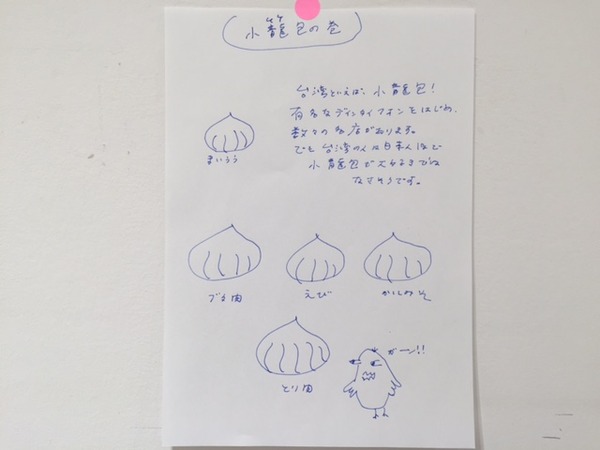 小籠包の巻
台湾といえば、小籠包!
有名なディンタイフォンをはじめ、
数々の名店があります。
でも台湾の人は日本人ほど
小籠包が大好きでは
なさそうです。
まいうう
ブタ肉
えび
かにみそ
とり肉
ガーン!!